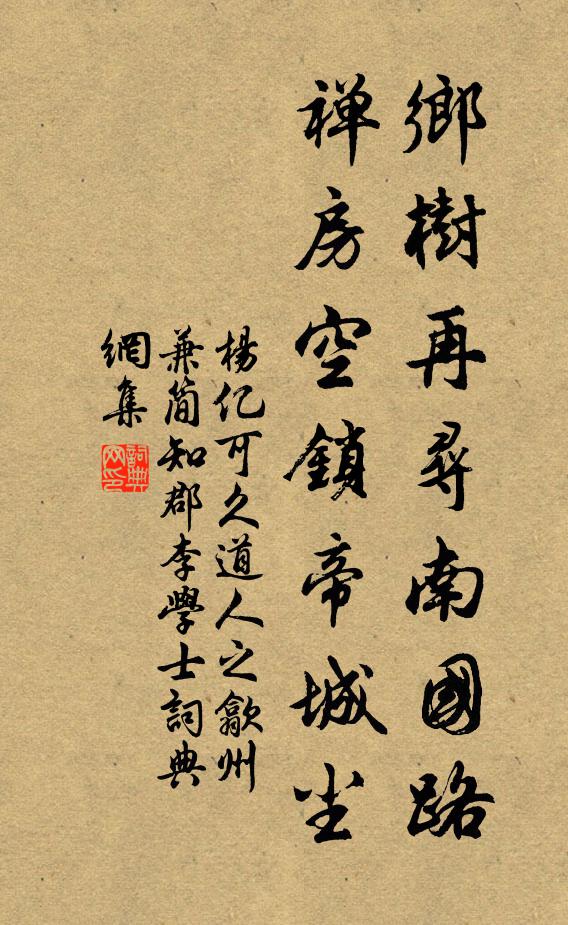 鄉樹再尋南國路
禅房空鎖帝城尘
楊亿可久道人之歙州
兼简知郡李學士詞典
網集
詞典
网印